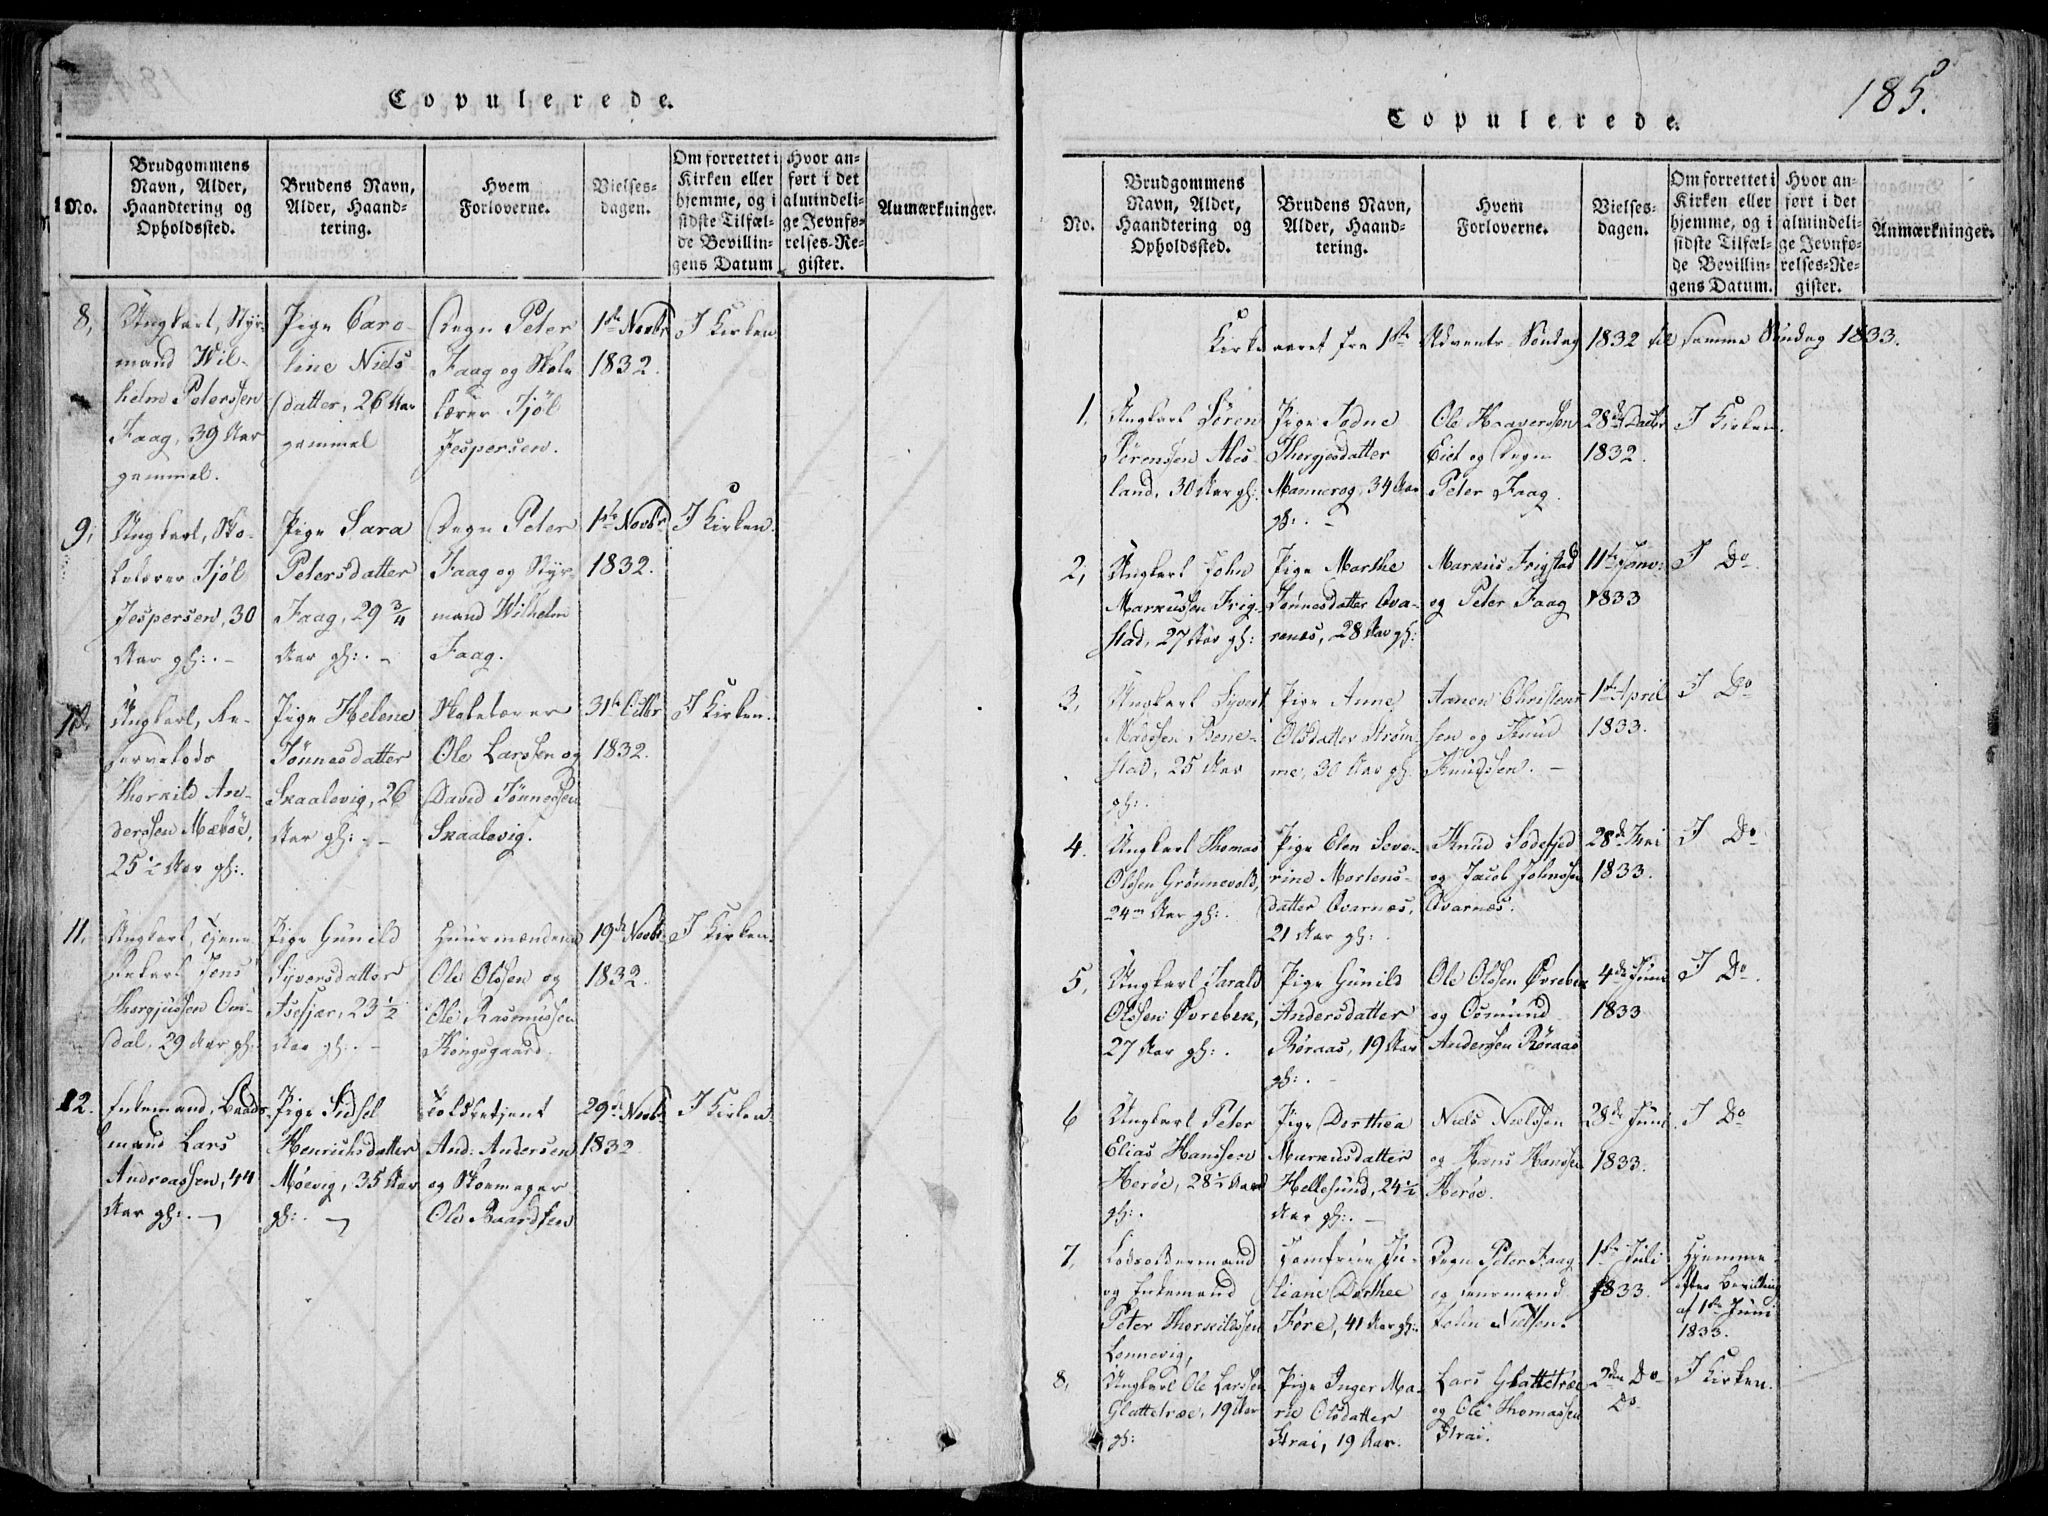 Copulerede.
No.
Brudgommens
Navn, Alder,
Haandtering og
Opholdssted.
Brudens Navn,
Alder, Haand-
tering.
Hvem
Forloverne.
Vielses-
dagen.
Om forrettet i
Kirken eller
hjemme, og i
sidste Tilfæl-
de Bevillin-
gens Datum
Hvor an-
ført i det
almindeli-
ge Jevnfø-
relses-Re-
gister.
Anmærkninger.
8,
Ungkarl, Styr-
mand Wil-
helm Peterssen
Faag, 39 Aar
gammel.
Pige Caro-
line Niels-
datter, 26 Aar
gammel
Degn Peter
Faag og Skole
lærer Tjöl
Jespersen.
1ste Novbr
1832.
I Kirken
9,
Ungkarl, Sko-
lelærer Tjöl
Jespersen, 30
Aar gh:. -
Pige Sara
Petersdatter
Faag, 29 3/4
Aar gh:. -
Degn Peter
Faag og Styr-
mand Wilhelm
Faag.
1ste Novbr
1832.
I Kirken.
10.
Ungkarl, Re-
servelods
Thorkild An-
derssen Mæböe,
25 1/2 Aar gh:.
Pige Helene
Tönnesdatter
Skaalevig, 26
Aar gh:. -
Skolelærer
Ole Larssen og
David Tönnessen
Skaalevig.
31te Octbr
1832.
I Kirken.
11.
Ungkarl, Tjene-
stekarl Jens
Thorgjussen Om-
dal, 29 Aar gh:.
Pige Gunild
Syversdatter
23 1/2
Aar gh:. -
Huusmændene
Ole Olssen og
Ole Rasmussen
Kongsgaard.
19de Novbr
1832.
I Kirken.
12.
Enkemand, Baads-
mand Lars
Andreassen, 44
Aar gh:. -
Pige Sidsel
Henrichsdatter
Möevig, 35 Aar
gh:. -
Toldbetjent
And: Andersen
og Skomager
Ole Baardsen
29de Novbr
1832.
I Kirken.
185.
Copulerede.
No.
Brudgommens
Navn, Alder,
Haandtering og
Opholdssted.
Brudens Navn,
Alder, Haand-
tering.
Hvem
Forloverne.
Vielses-
dagen.
Om forrettet i
Kirken eller
hjemme, og i
sidste Tilfæl-
de Bevillin-
gens Datum.
Hvor an-
ført i det
almindeli-
ge Jevnfø-
relses-Re-
gister.
Anmærkninger.
Kirkeaaret fra 1ste Advents Söndag 1832 til samme Söndag 1833.
1,
Ungkarl Sören
Sörenssen Abes-
land, 30 Aar gh:.
Pige Todne
Thergjesdatter
Mannerog, 34 Aar
gh:. -
Ole Haaverssen
Eiet og Degn
Peter Faag.
28de Decbr
1832.
I Kirken.
2,
Ungkarl John
Markussen Trig-
stad, 27 Aar gh:
Pige Marthe
Tönnesdatter Qva-
renes, 28 Aar gh:
Markus Trigstad
og Peter Faag
11te Janv:
1833
I Do
3,
Ungkarl Syvert
Madssen Bene-
stad, 25 Aar
gh:.
Pige Anne
Olsdatter Ström-
me, 30 Aar gh:
Aanen Christens-
sen og Knud
Knudssen. -
1ste April
1833.
I Do
4.
Ungkarl Thomas
Olssen Grönnevold,
24 Aar gh:.
Pige Elen Seve-
rine Mortens-
datter Qvarnes,
21 Aar gh:.
Knud Södefjed
og Jacob Johnssen
Qvarnes.
28de Mai
1833.
I Do.
5,
Ungkarl Tarald
Olssen Övrebek,
27 Aar gh:.
Pige Gunild
Andersdatter
Röraas, 19 Aar
gh:. -
Ole Olssen Övrebek
og Osmund
Anderssen Röraas
4de Juni
1833
I Do.
6
Ungkarl Peter
Elias Hanssen
Heröe, 28 1/2 Aar
gh:.
Pige Dorthea
Markusdatter
Hellesund, 24 1/2
Aar gh:. -
Niels Nielssen
og Hans Hanssen
Heröe.
28de Juni
1833.
I Do
7,
Lodsoldermand
og Enkemand
Peter Thorkildssen
Lonnevig,
Jomfrue Ju-
liane Dorthee
Före, 41 Aar gh:.
Degn Peter Faag
og Lensmand
John Nielsen.
1ste Juli
1833.
Hjemme
efter Bevilling
af 1ste Juni
1833.
8,
Ungkarl Ole Larssen
Glattetræ, 19 Aar
gh:
Pige Inger Ma-
rie Olsdatter
Strai, 19 Aar.
Lars Glattetræ
og Ole Thomassen
Strai.
2den Do
Do
I Kirken.